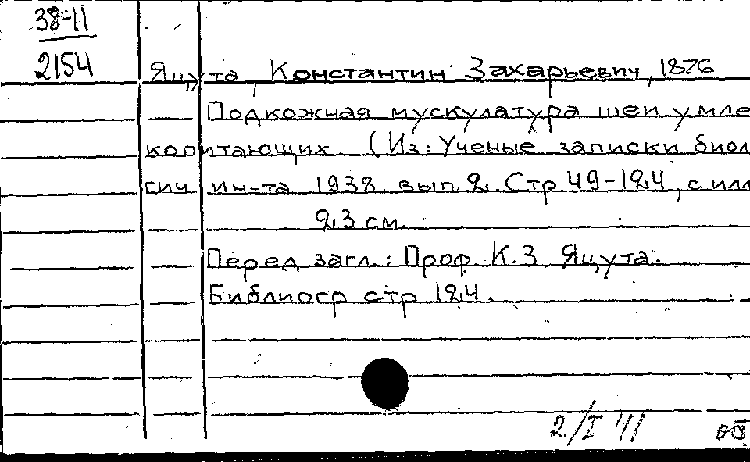 38-11
2154
Яцута, Константин Захарьевич, 1876
Подкожная мускулатура шеи у мле
копитающих. (Из: Ученые записки биол
гич. ин-та 1938 вып. 2. Стр 49-124, с илл
23 см.
Перед загл.: Проф. К.З Яцута.
Библиогр стр 124.
2/I 41